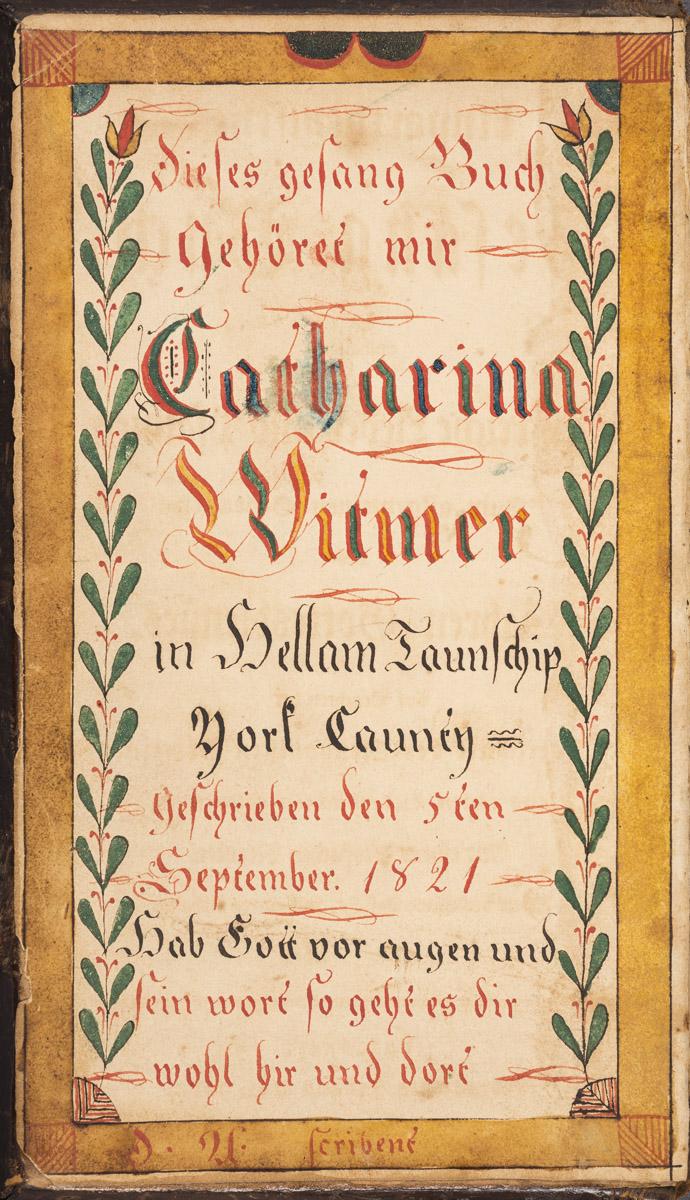 dieses gesang Buch
Gehöret mir
Catharina
Witmer
in Hellam Taunschip
York Caunty =
Geschrieben den 5ten
September. 1821
Hab Gott vor augen und
sein wort so geht es dir
wohl hir und dort
scribent